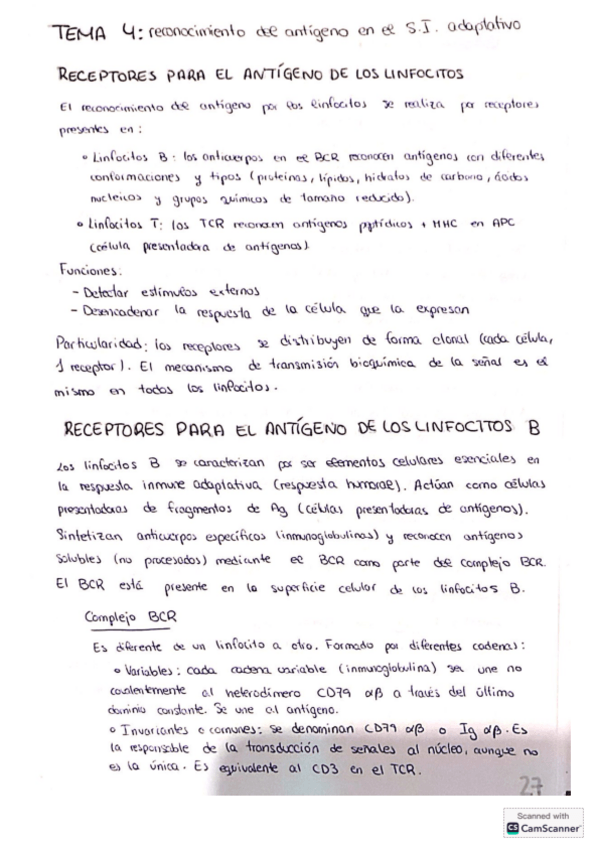 TEMA 4: reconocimiento del antígeno en el S.I. adaptativo
RECEPTORES PARA EL ANTÍGENO DE LOS LINFOCITOS
El reconocimiento del antígeno por los linfocitos se realiza por receptores
presentes en:
• Linfocitos B: los anticuerpos en el BCR reconocen antígenos con diferentes
conformaciones y tipos (proteínas, lípidos, hidratos de carbono, ácidos
nucleicos y grupos químicos de tamaño reducido).
• Linfocitos T: los TCR reconocen antígenos peptídicos + MHC en APC
(célula presentadora de antígenos).
Funciones:
- Detectar estímulos externos
- Desencadenar la respuesta de la célula que la expresan
Particularidad: los receptores se distribuyen de forma clonal (cada célula,
1 receptor). El mecanismo de transmisión bioquímica de la señal es el
mismo en todos los linfocitos.
RECEPTORES PARA EL ANTÍGENO DE LOS LINFOCITOS B
Los linfocitos B se caracterizan por ser elementos celulares esenciales en
la respuesta inmune adaptativa (respuesta humoral). Actúan como células
presentadoras de fragmentos de Ag (células presentadoras de antígenos).
Sintetizan anticuerpos específicos (inmunoglobulinas) y reconocen antígenos
solubles (no procesados) mediante el BCR como parte del complejo BCR.
El BCR está presente en la superficie celular de los linfocitos B.
Complejo BCR
Es diferente de un linfocito a otro. Formado por diferentes cadenas:
• Variables: cada cadena variable (inmunoglobulina) se une no
covalentemente al heterodímero CD79 αβ a través del último
dominio constante. Se une al antígeno.
• Invariantes o comunes: se denominan CD79 αβ o Ig αβ. Es
la responsable de la transducción de señales al núcleo, aunque no
es la única. Es equivalente al CD3 en el TCR.
27
Scanned with
CS CamScanner